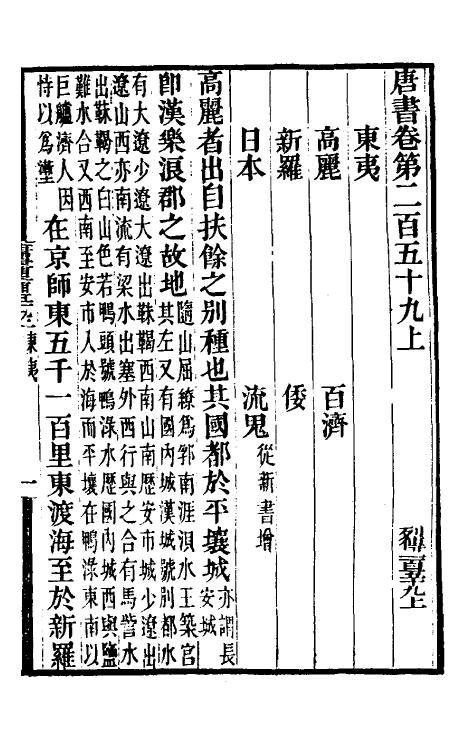 唐書卷第二百五十九上
東夷
高麗 百濟
新羅 倭
日本 流鬼 從新書增
高麗者出自扶餘之別種也其國都於平壤城 亦謂長安城
卽漢樂浪郡之故地 隨山屈繚爲郛南涯浿水王築官其左又有國內城漢城號別都水
有大遼少遼大遼出靺鞨西南山南歷安市城少遼出
遼山西亦南流有梁水出塞外西行與之合有馬訾水
出靺鞨之白山色若鴨頭號鴨淥水歷國內城西與鹽
難水合又西南至安市入於海而平壤在鴨淥東南以
巨艫濟人因恃以爲壍 在京師東五千一百里東渡海至於新羅
東夷 一